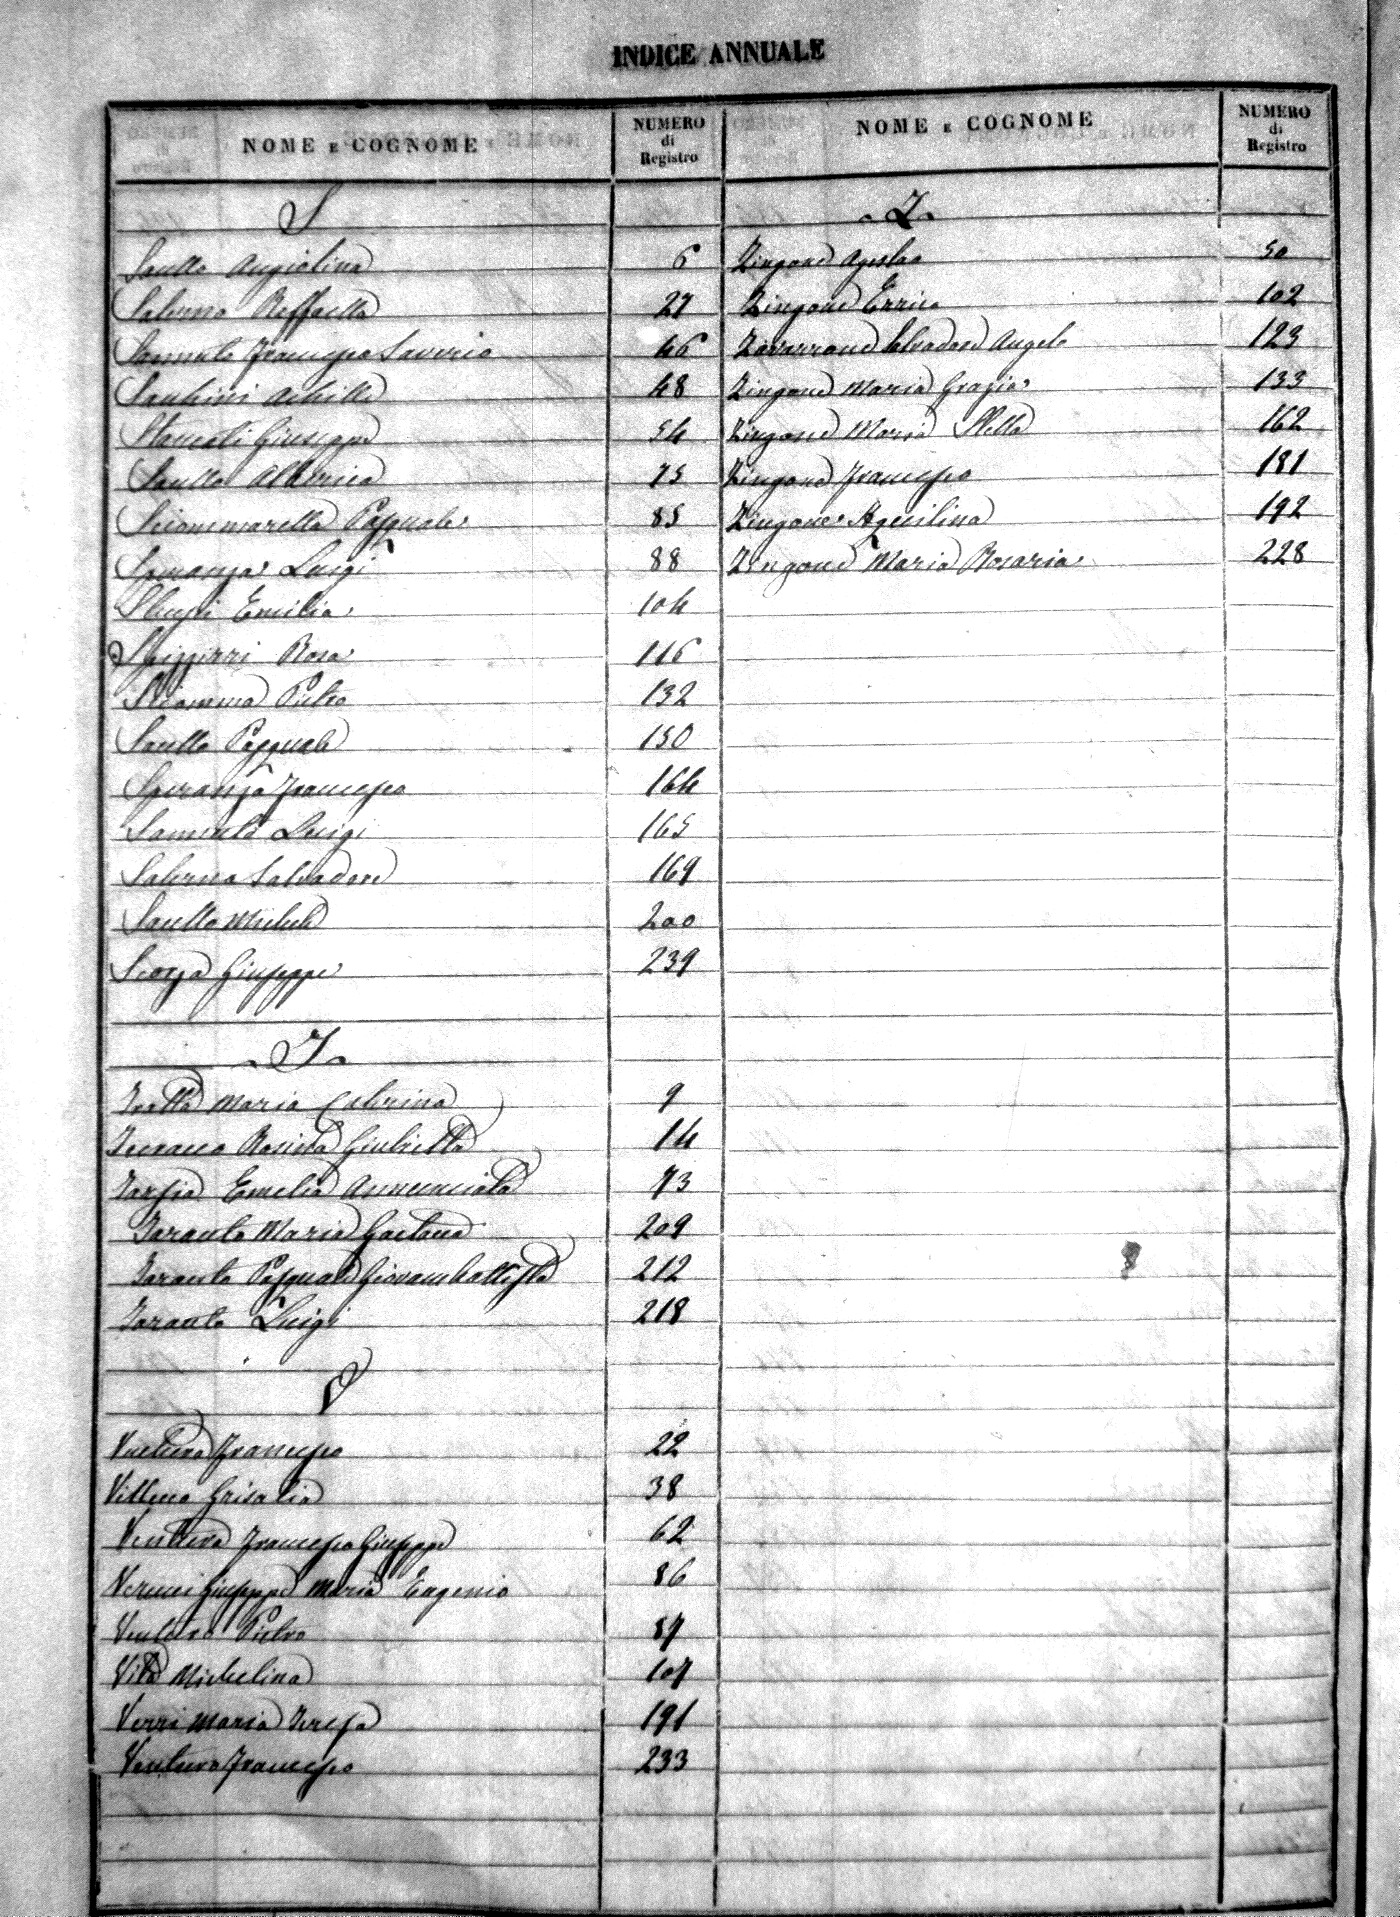 INDICE ANNUALE
NOME E COGNOME
NUMERO
di
Registro
S
Saullo Angiolina 6
Salerno Raffaella 27
Sammito Francesco Saverio 46
Santini Achille 48
Stancati Giuseppe 54
Saullo Alberico 75
Sciommarella Pasquale 85
Speranza Luigi 88
Emilia 104
Spizzirri Rosa 116
Sciomma Pietro 132
Saullo Pasquale 150
Speranza Francesco 164
Luigi 165
Salerno Salvadore 169
Saullo Michele 200
Scorza Giuseppe 239
T
Maria Caterina 9
Rosina Giulietta 14
Tarsia Emelia Annunciata 73
Taranto Maria Gaetana 209
Taranto Pasquale Giovambattista 212
Taranto Luigi 218
V
Ventura Francesco 22
Grisolia 38
Ventura Francesco Giuseppe 62
Vernucci Giuseppe Maria Eugenio 86
Ventura Pietro 87
Vita Michelina 107
Verri Maria Teresa 191
Ventura Francesco 233
NOME E COGNOME
NUMERO
di
Registro
Z
Zingone 50
Zingone Errico 102
Zavarrone Salvadore Angelo 123
Zingone Maria Grazia 133
Zingone Maria Stella 162
Zingone Francesco 181
Zingone Aquilina 192
Zingone Maria Rosaria 228